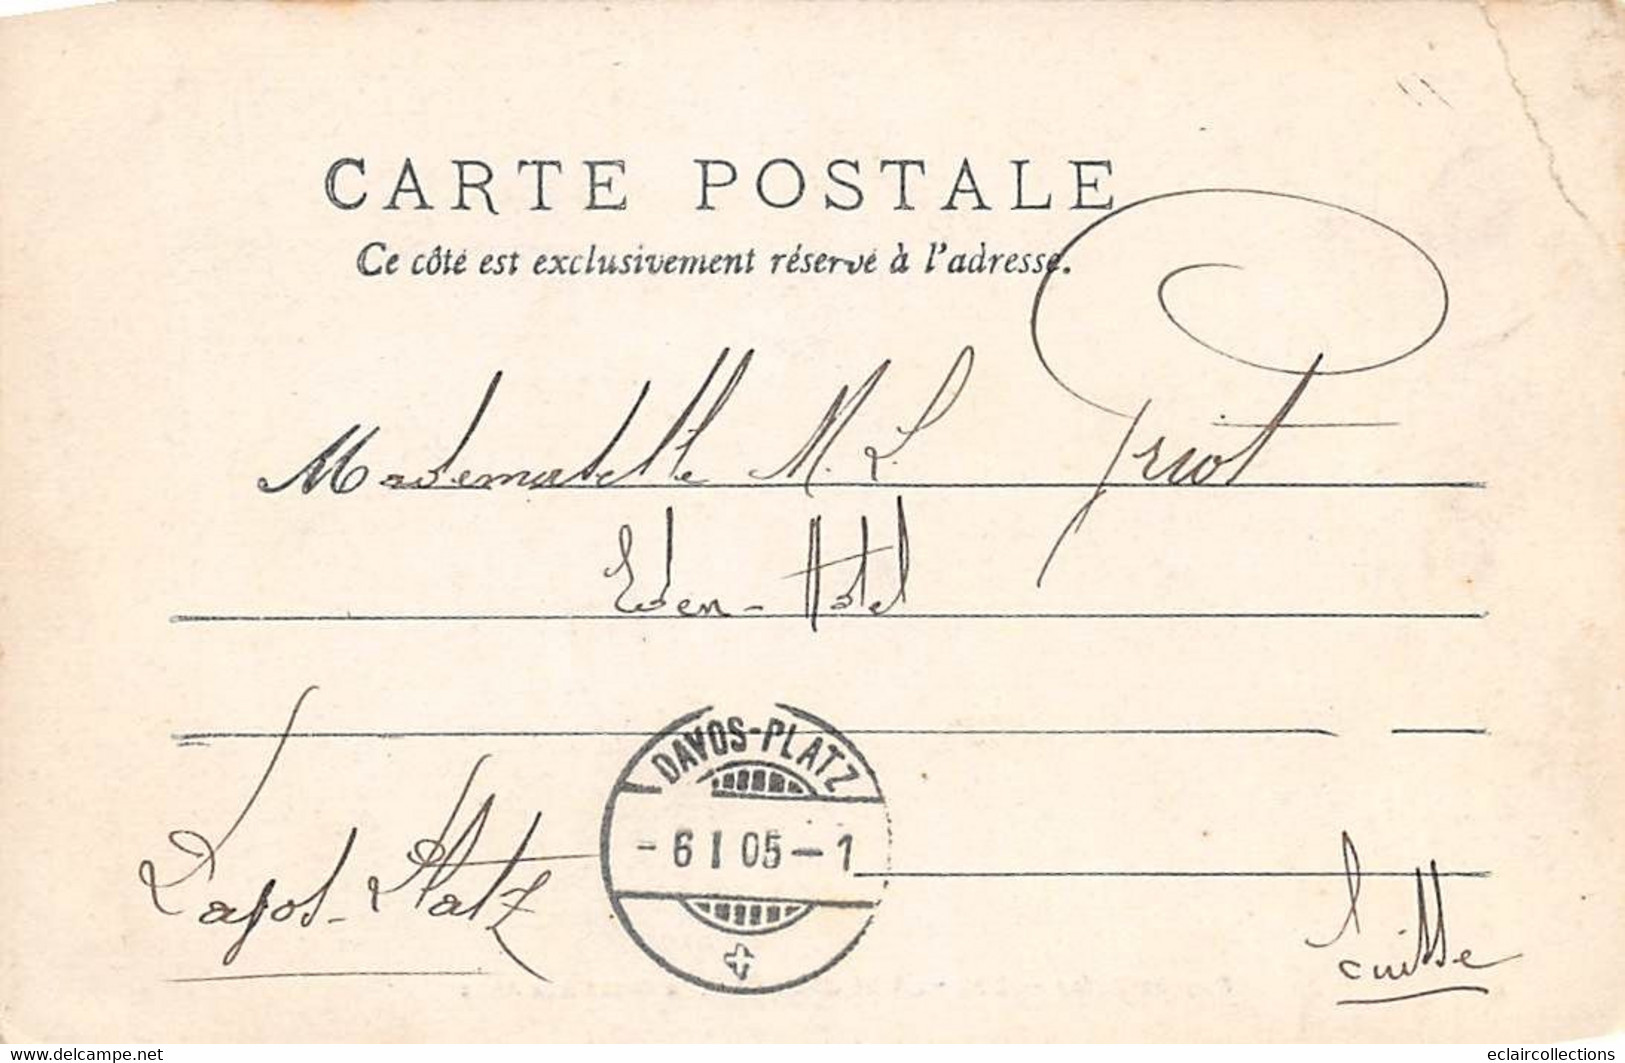 CARTE POSTALE
Ce côté est exclusivement réservé à l'adresse.
Mademoiselle M. L. Griot
Eden-Hotel
DAVOS-PLATZ
-6 I 05-1
Davos-Platz
Suisse
www.delcampe.net
eclaircollections